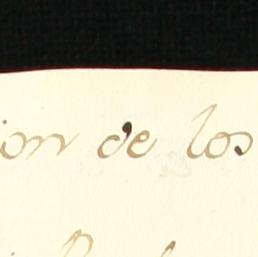 ion de los